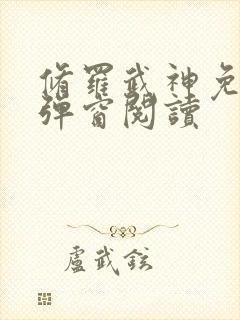 脩羅武神免
彈窗閱讀
盧武鉉